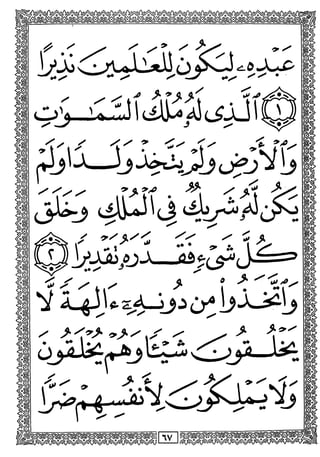 عَبۡدِهِۦ لِيَكُونَ لِلۡعَٰلَمِينَ نَذِيرًا
١ ٱلَّذِي لَهُۥ مُلۡكُ ٱلسَّمَٰوَٰتِ
وَٱلۡأَرۡضِ وَلَمۡ يَتَّخِذۡ وَلَدٗا وَلَمۡ
يَكُن لَّهُۥ شَرِيكٞ فِي ٱلۡمُلۡكِ وَخَلَقَ
كُلَّ شَيۡءٖ فَقَدَّرَهُۥ تَقۡدِيرٗا ٢
وَٱتَّخَذُواْ مِن دُونِهِۦٓ ءَالِهَةٗ لَّا
يَخۡلُقُونَ شَيۡـٔٗا وَهُمۡ يُخۡلَقُونَ
وَلَا يَمۡلِكُونَ لِأَنفُسِهِمۡ ضَرّٗا
٦٧